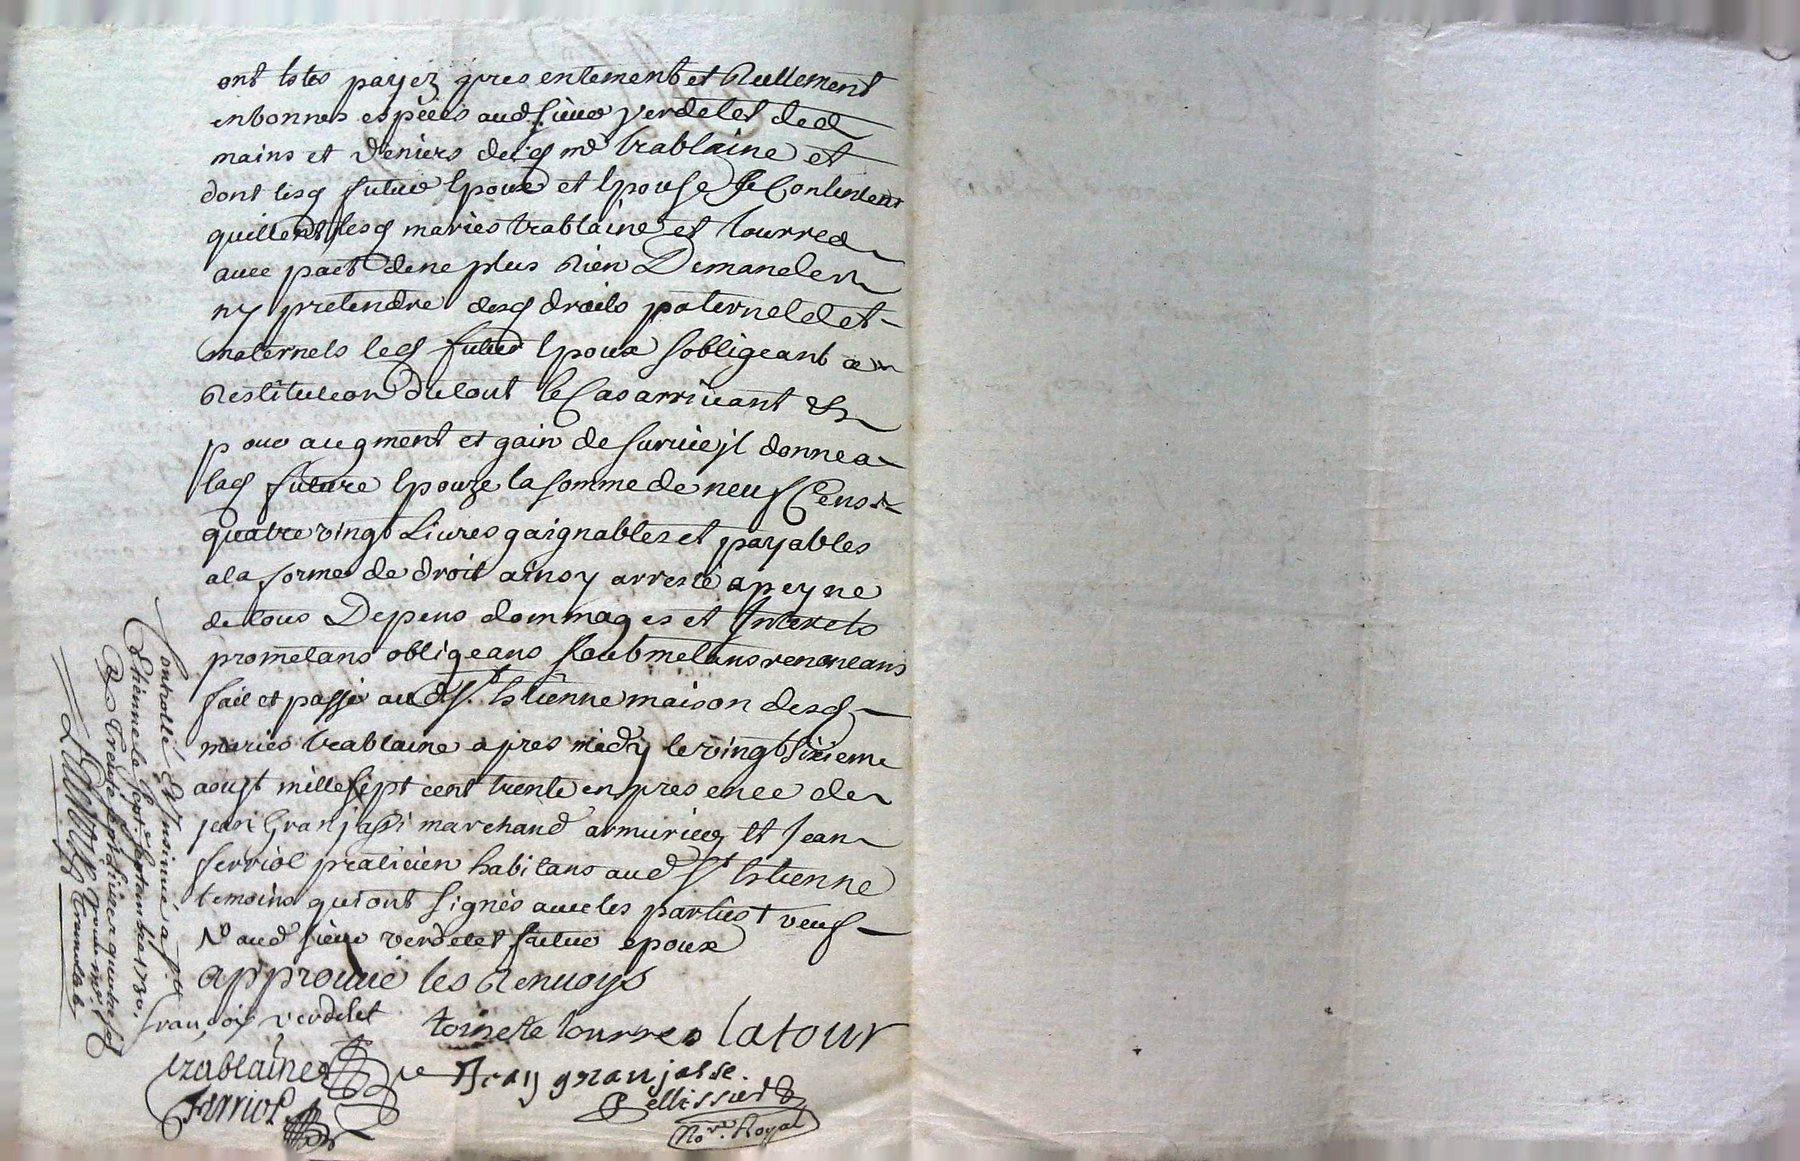 ont estes payez presentement et Reellement
enbonnes espèces aud sieur verdelet des
mains et deniers desq md trablaine et
dont lesq futur Epoux et Epouse se Contentent
quittent lesq mariés trablaine et tourred
avec pact dene plus Rien Demander
ny pretendre desq droits paternels et
maternels leq futur Epoux sobligeant a
Restitution dutout le Cas arrivant Et
pour augment et gain de survie jl donne a
laq future Epouze la somme de neuf Cens
quatre vingt Livres gaignables et payables
ala forme de droit ainsy arresté apeyne
de tous Depens dommages et Interets
prometans obligeans soubmetans renonceans
fait et passé aud St. Estienne maison desq
mariés trablaine apres midy le vingt sixieme
aoust mille sept cent trente en presence de
jean Granjassi marchand armurier et Jean
ferriol praticien habitans aud St Estienne
temoins qui ont signés avec les parties † veuf
aud sieur verdelet futur epoux
approuvé les Renvoys
françois verdelet toinete tourre latour
trablaine Jean granjasse.
ferriol Pellissier
No.re Royal
Controllé Et Insinué a St
Etienne le sept. septembre 1730.